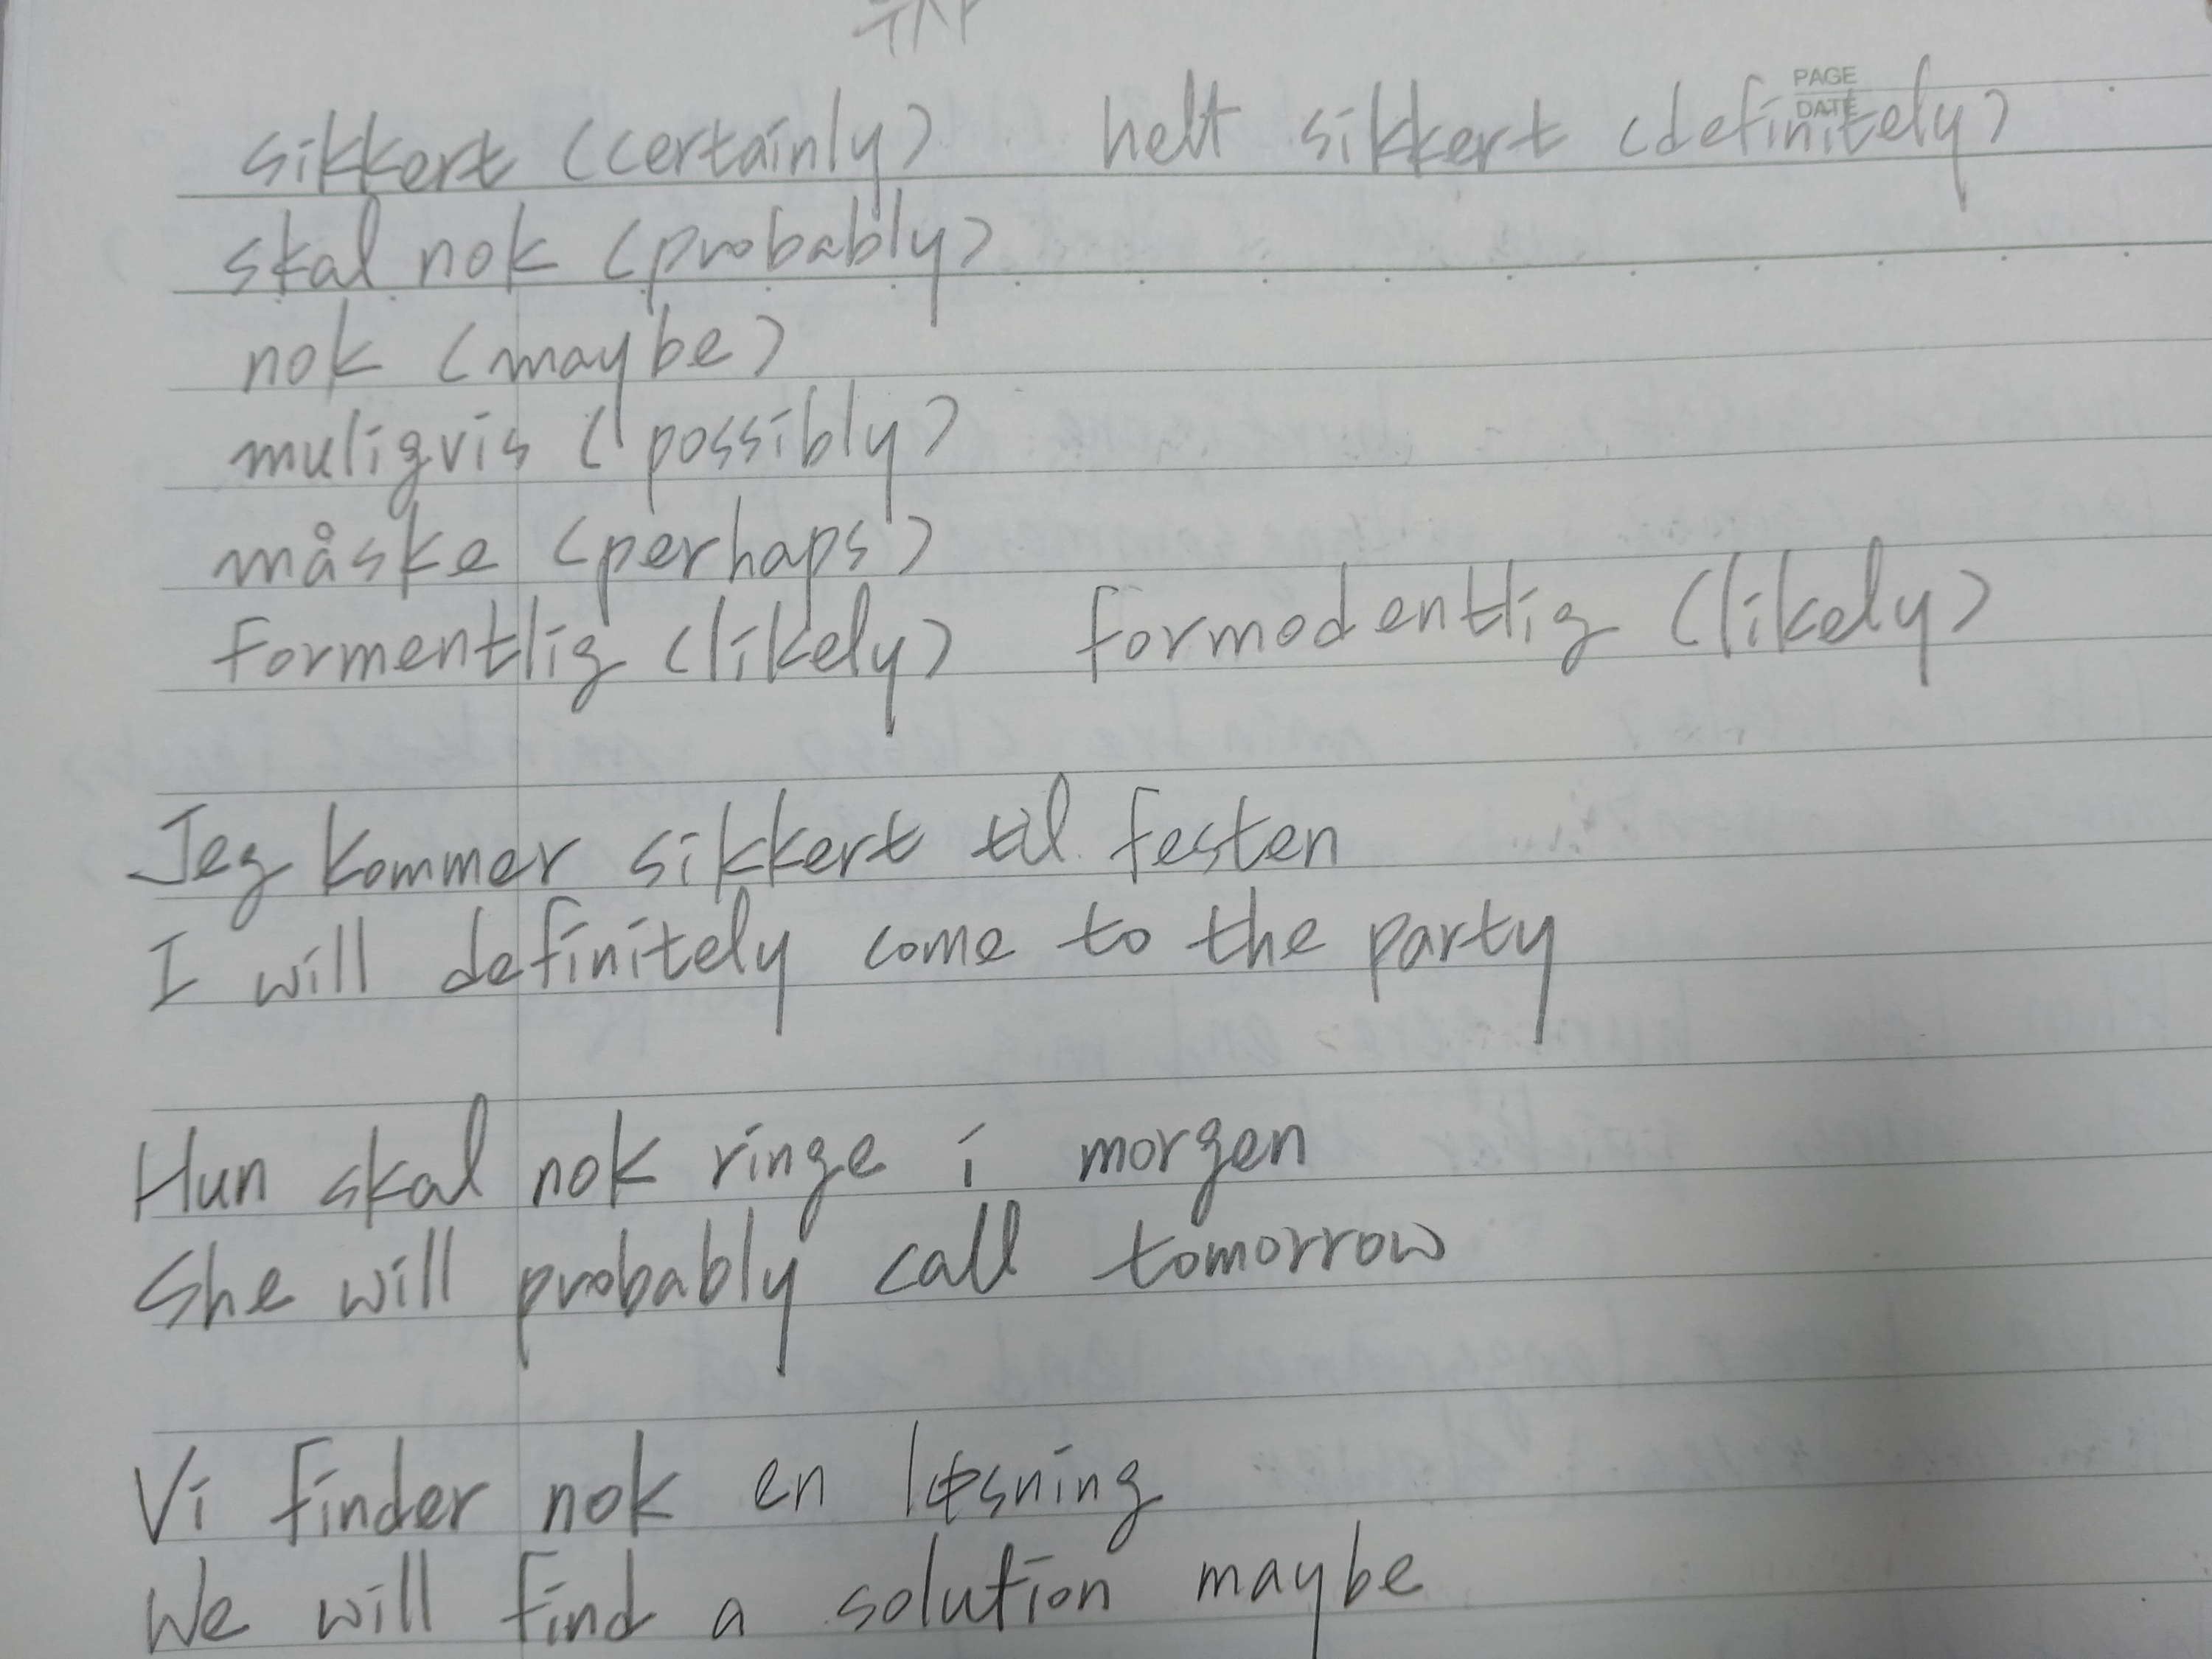 PAGE
DATE
sikkert (certainly) helt sikkert (definitely)
skal nok (probably)
nok (maybe)
muligvis (possibly)
måske (perhaps)
formentlig (likely) formodentlig (likely)
Jeg kommer sikkert til festen
I will definitely come to the party
Hun skal nok ringe i morgen
She will probably call tomorrow
Vi finder nok en løsning
We will find a solution maybe